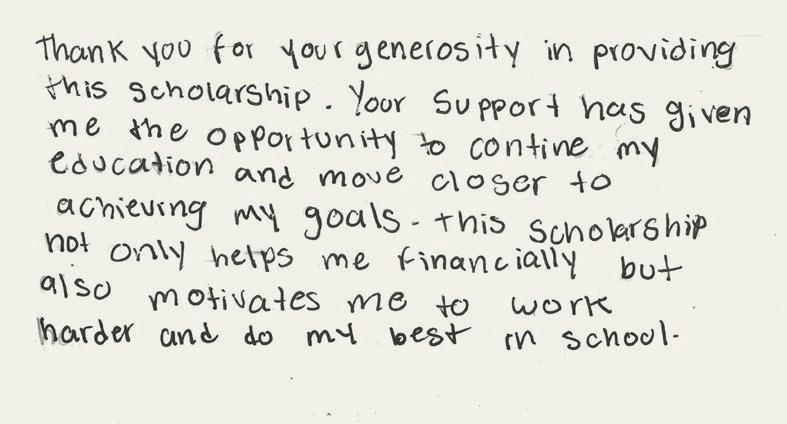 Thank you for your generosity in providing
this scholarship. Your Support has given
me the opportunity to contine my
education and move closer to
achieving my goals. This scholarship
not only helps me financially but
also motivates me to work
harder and do my best in school.